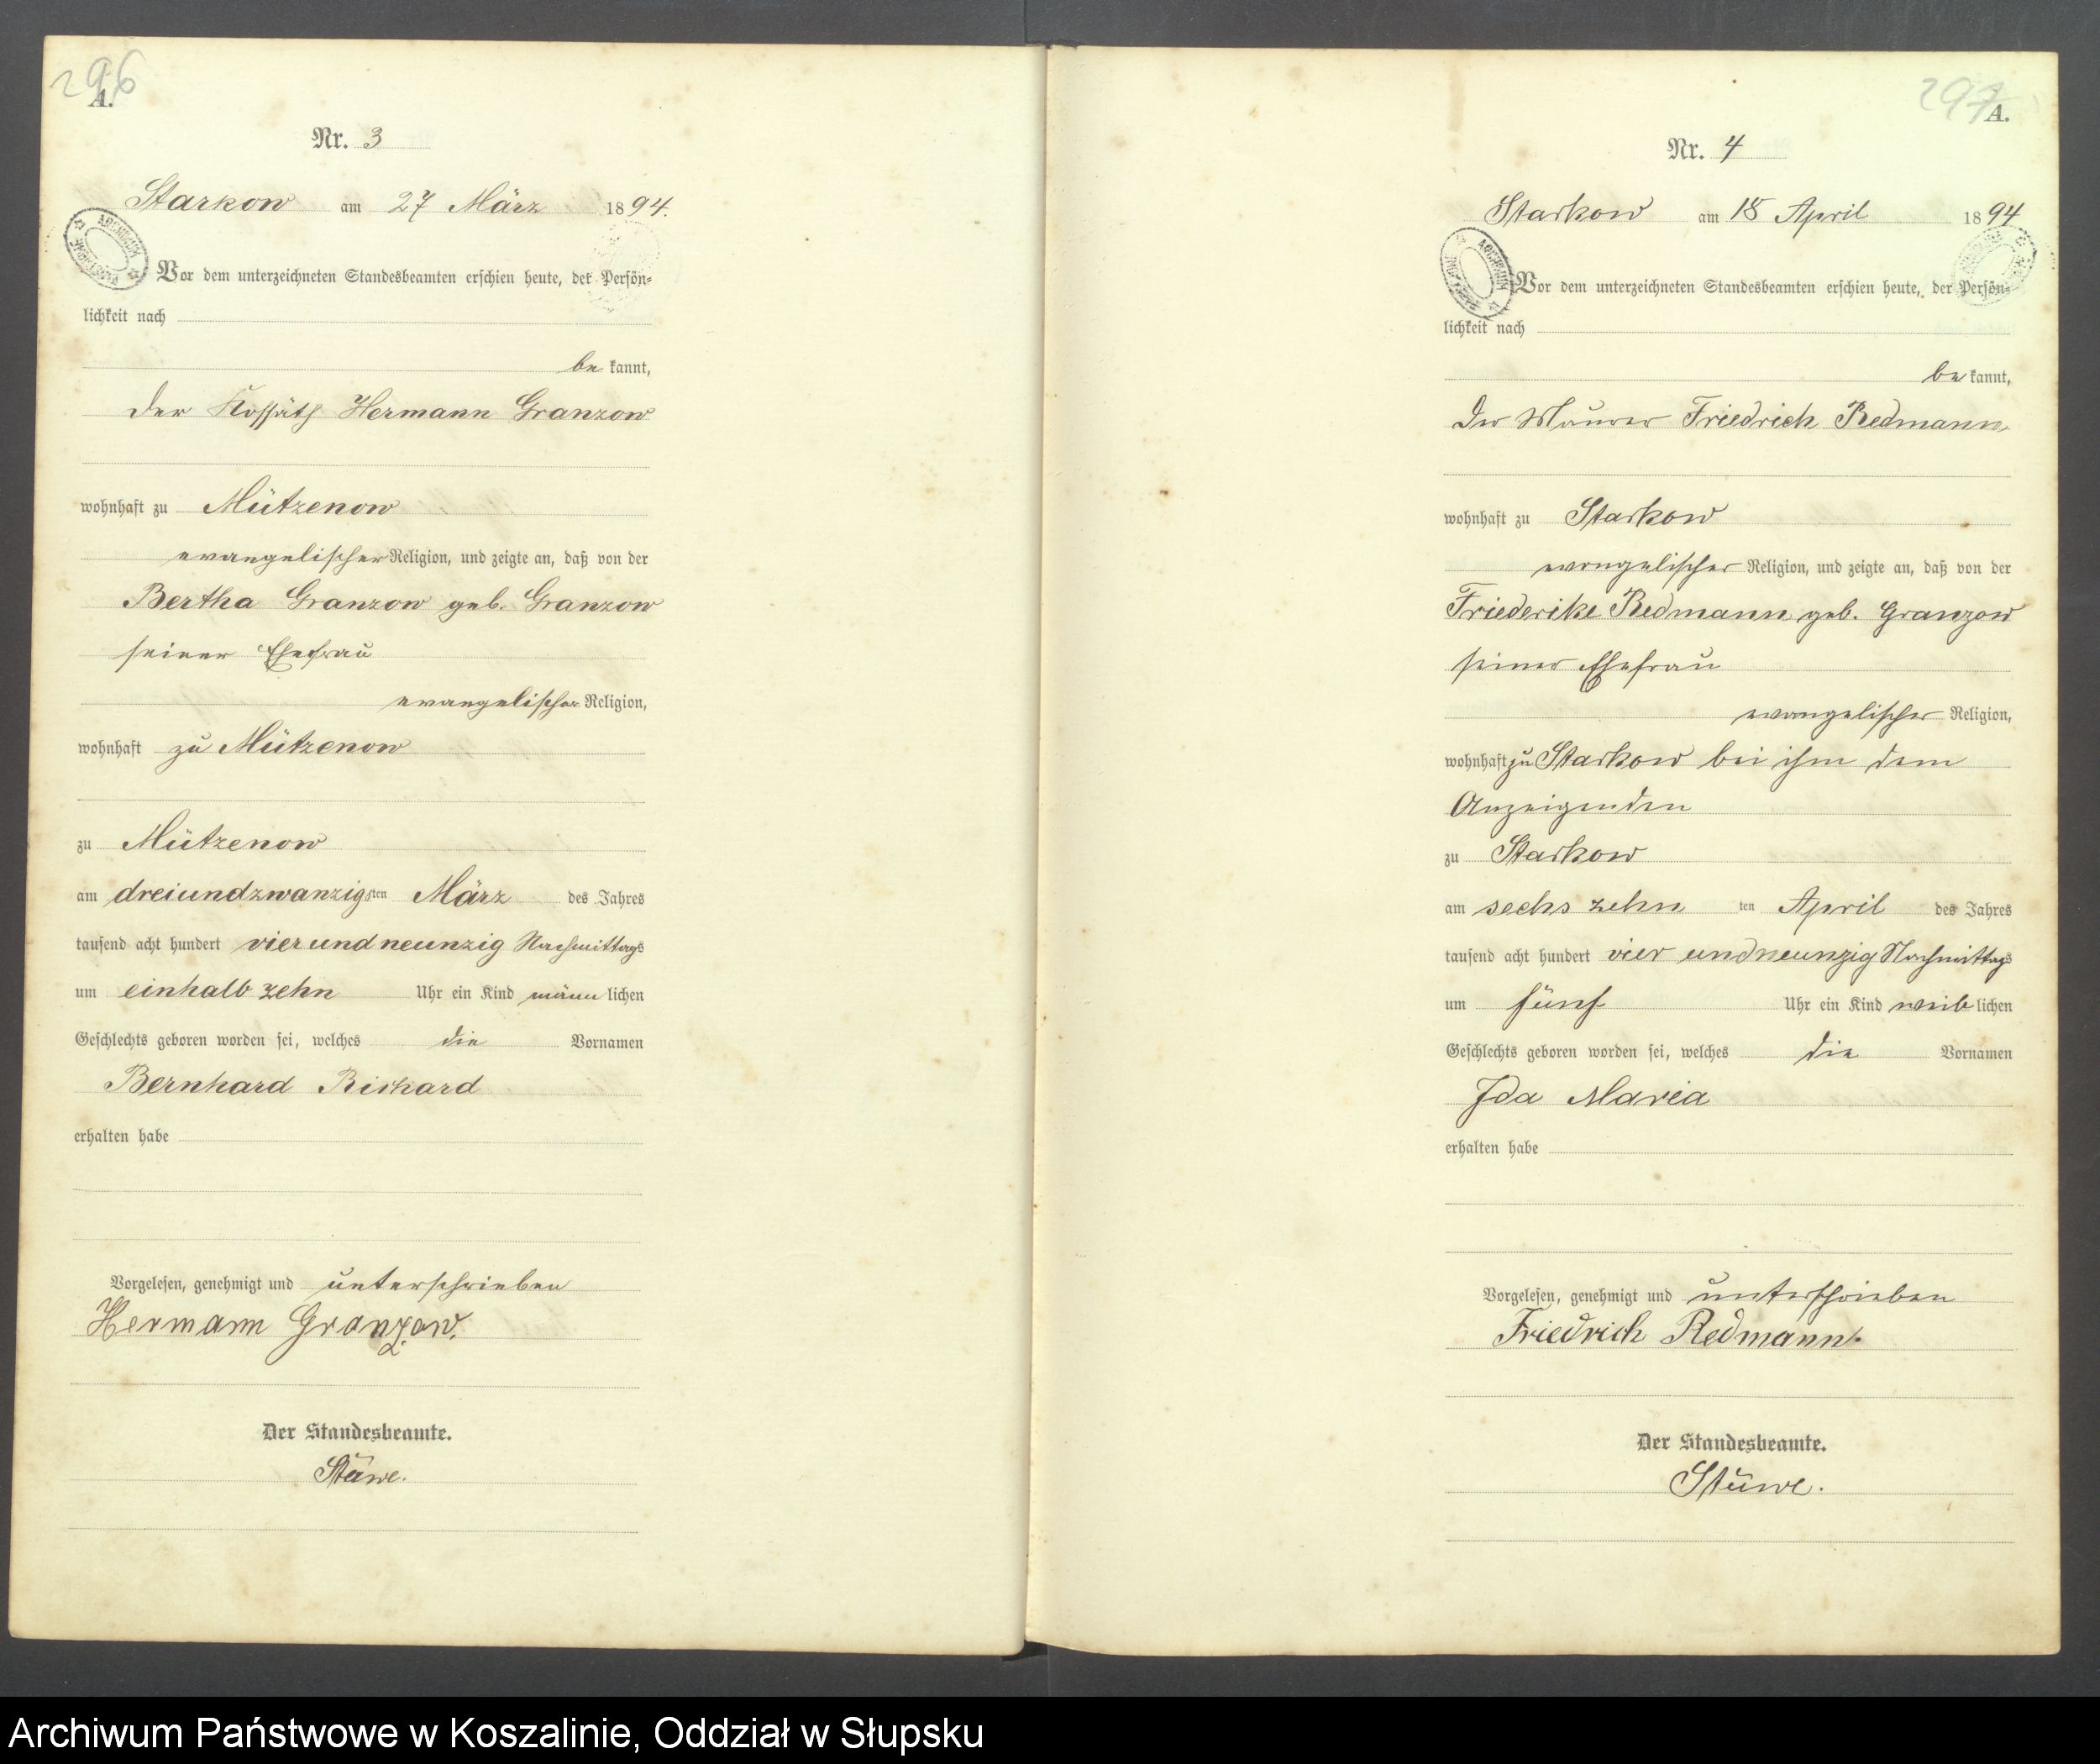 296
A.
Nr. 3
Starkow am 27 März 1894.
Vor dem unterzeichneten Standesbeamten erschien heute, der Persön-
lichkeit nach
be kannt,
der Kossäth Hermann Granzow
wohnhaft zu Mützenow
evangelischer Religion, und zeigte an, daß von der
Bertha Granzow geb. Granzow
seiner Ehefrau
evangelischer Religion,
wohnhaft zu Mützenow
zu Mützenow
am dreiundzwanzigsten März des Jahres
tausend acht hundert vierundneunzig Nachmittags
um einhalb zehn Uhr ein Kind männlichen
Geschlechts geboren worden sei, welches die Vornamen
Bernhard Richard
erhalten habe
Vorgelesen, genehmigt und unterschrieben
Hermann Granzow.
Der Standesbeamte.
Stüwe.
297
A.
Nr. 4
Starkow am 18 April 1894
Vor dem unterzeichneten Standesbeamten erschien heute, der Persön-
lichkeit nach
be kannt,
der Maurer Friedrich Redmann
wohnhaft zu Starkow
evangelischer Religion, und zeigte an, daß von der
Friederike Redmann geb. Granzow
seiner Ehefrau
evangelischer Religion,
wohnhaft zu Starkow bei ihm dem
Anzeigenden
zu Starkow
am sechszehn ten April des Jahres
tausend acht hundert vier undneunzig Nachmittags
um fünf Uhr ein Kind weiblichen
Geschlechts geboren worden sei, welches die Vornamen
Ida Maria
erhalten habe
Vorgelesen, genehmigt und unterschrieben
Friedrich Redmann.
Der Standesbeamte.
Stüwe.
Archiwum Państwowe w Koszalinie, Oddział w Słupsku